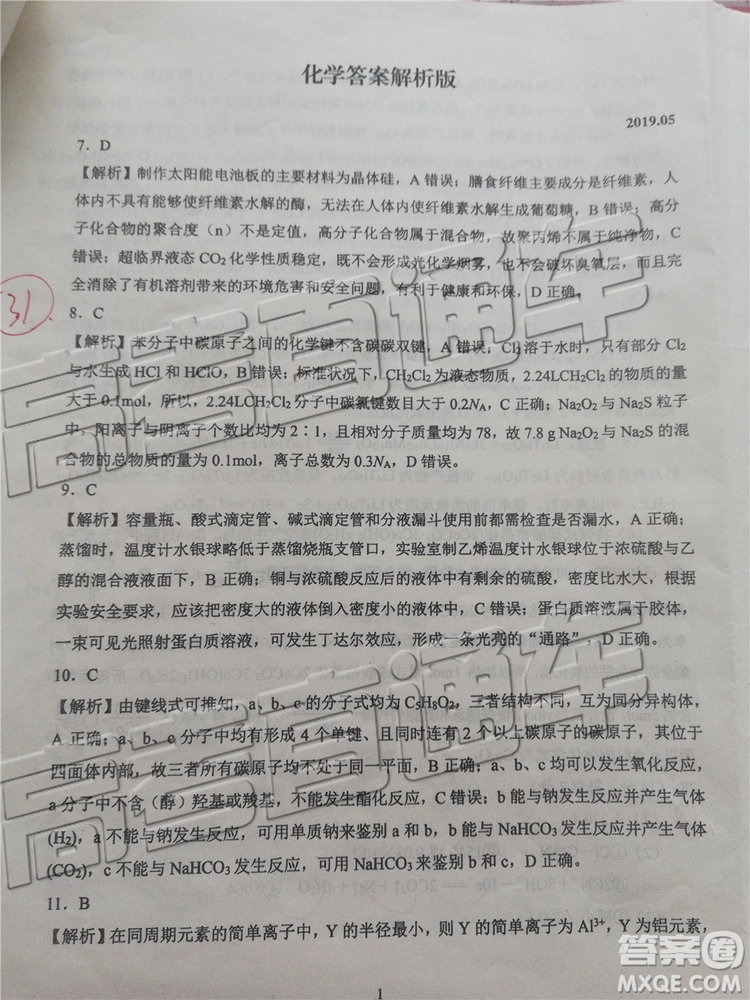 化学答案解析版
2019.05
7．D
【解析】制作太阳能电池板的主要材料为晶体硅，A 错误；膳食纤维主要成分是纤维素，人
体内不具有能够使纤维素水解的酶，无法在人体内使纤维素水解生成葡萄糖，B 错误；高分
子化合物的聚合度（n）不是定值，高分子化合物属于混合物，故聚丙烯不属于纯净物，C
错误；超临界液态 CO₂ 化学性质稳定，既不会形成光化学烟雾，也不会破坏臭氧层，而且完
全消除了有机溶剂带来的环境危害和安全危害，有利于健康和环保，D 正确。
31
8．C
【解析】本分子中碳原子之间的化学键不含碳碳双键，A 错误；Cl₂ 溶于水时，只有部分 Cl₂
与水生成 HCl 和 HClO，B 错误；标准状况下，CH₂Cl₂ 为液态物质，2.24LCH₂Cl₂ 的物质的量
大于 0.1mol，所以，2.24LCH₂Cl₂ 分子中碳氯键数目大于 0.2Nₐ，C 正确；Na₂O₂ 与 Na₂S 粒子
中，阳离子与阴离子个数比均为 2∶1，且相对分子质量均为 78，故 7.8 g Na₂O₂ 与 Na₂S 的混
合物的总物质的量为 0.1mol，离子总数为 0.3Nₐ，D 错误。
9．C
【解析】容量瓶、酸式滴定管、碱式滴定管和分液漏斗使用前都需检查是否漏水，A 正确；
蒸馏时，温度计水银球略低于蒸馏烧瓶支管口，实验室制乙烯温度计水银球位于浓硫酸与乙
醇的混合液液面下，B 正确；铜与浓硫酸反应后的液体中有剩余的硫酸，密度比水大，根据
实验安全要求，应该把密度大的液体倒入密度小的液体中，C 错误；蛋白质溶液属于胶体，
一束可见光照射蛋白质溶液，可发生丁达尔效应，形成一条光亮的“通路”，D 正确。
10．C
【解析】由键线式可推知，a、b、c 的分子式均为 C₅H₈O₂，三者结构不同，互为同分异构体，
A 正确；a、b、c 分子中均有形成 4 个单键、且同时连有 2 个以上碳原子的碳原子，其位于
四面体内部，故三者所有碳原子均不处于同一平面，B 正确；a、b、c 均可以发生氧化反应，
a 分子中不含（醇）羟基或羧基，不能发生酯化反应，C 错误；b 能与钠发生反应并产生气体
(H₂)，a 不能与钠发生反应，可用单质钠来鉴别 a 和 b，b 能与 NaHCO₃ 发生反应并产生气体
(CO₂)，c 不能与 NaHCO₃ 发生反应，可用 NaHCO₃ 来鉴别 b 和 c，D 正确。
11．B
【解析】在同周期元素的简单离子中，Y 的半径最小，则 Y 的简单离子为 Al³⁺，Y 为铝元素，
1
高考直通车
高考直通车
答案圈
MXQE.COM